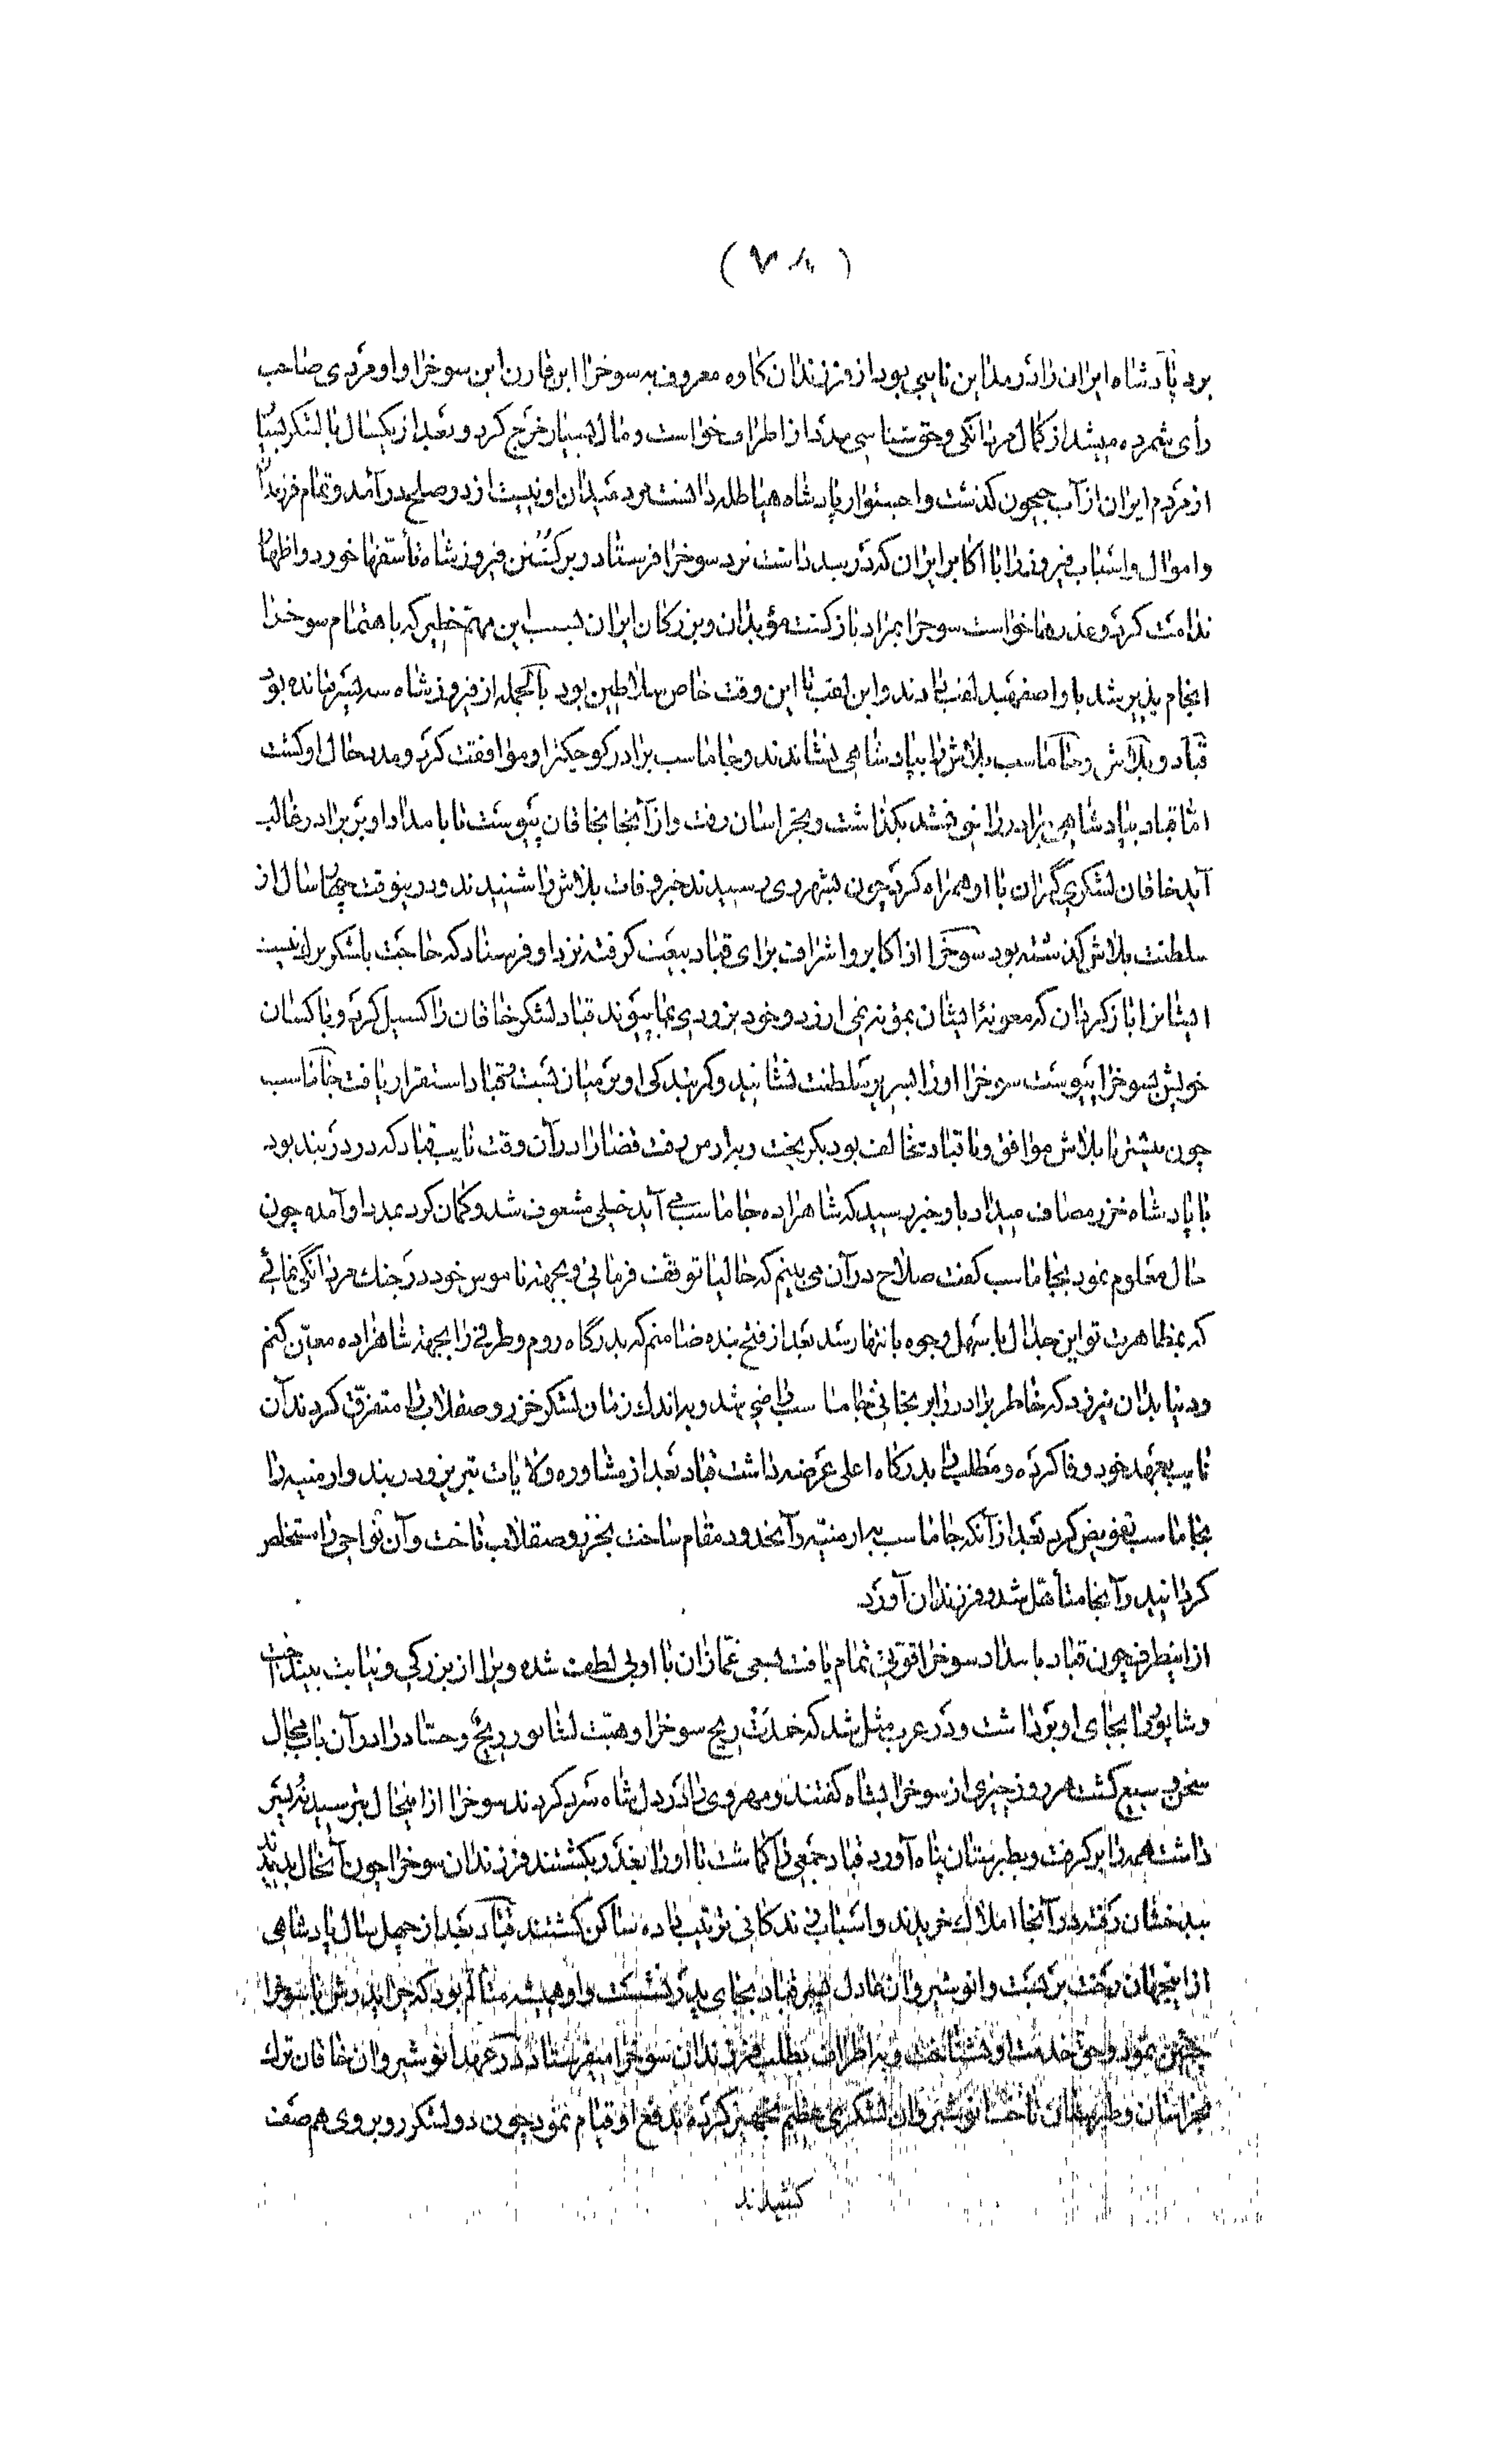 ( ٧٨ )
برد پادشاه ایران را در مداین نایبی بود از فرزندان کاوه معروف به سوخرا ابن قارن ابن سوخرا و او مردی صاحب
رأی شمرده میشد از کمال مردانکی و حق شناسی مدد از اطراف خواست و مال بسیار خرج کرد و بعد از یکسال با لشکر بسیار
از مردم ایران از آب جیحون کذشت پادشاه هیاطله دانست مرد میدان او نیست از در صلح در آمد و تمام فرزندان
و اموال و اسباب فیروز را با اکابر ایران که در بند داشت نزد سوخرا فرستاد و بر کشتن فیروز شاه تأسفها خورد و اظهار
ندامت کرد و عذرها خواست سوخرا بمراد باز کشت مؤبدان و بزرکان ایران بسبب این مهم خطیر که باهتمام سوخرا
انجام پذیر شد باو اصفهبد لقب دادند و این لقب تا این وقت خاص سلاطین بود بالجمله از فیروز شاه سه پسر مانده بود
قباد و بلاش و جاماسب بلاش را بپادشاهی بنشاندند و جاماسب برادر کوچکتر او موافقت کرد و مدد حال او کشت
اما قباد بپادشاهی برادر راضی نشد بکذاشت و بخراسان رفت و از آنجا بخاقان پیوست تا بامداد او بر برادر غالب
آید خاقان لشکری کران با او همراه کرد چون بشهر ری رسیدند خبر وفات بلاش را شنیدند و درینوقت چهار سال از
سلطنت بلاش کذشته بود سوخرا از اکابر و اشراف برای قباد بیعت کرفته نزد او فرستاد که حاجت بلشکر بردن نیست
ایشانرا باز کردان که معونت ایشان بمؤنه نمی ارزد و خود بزودی بما پیوند قباد لشکر خاقان را کسیل کرد و با کسان
خویش بسوخرا پیوست سوخرا او را بسریر سلطنت نشانید و کمر بندکی او بر میان بست قباد استقرار یافت جاماسب
چون پیشتر با بلاش موافق و با قباد مخالف بود بکریخت و بارمن رفت قضا را در آن وقت نایب قباد که در دربند بود
با پادشاه خزر مصاف میداد باو خبر رسید که شاهزاده جاماسب می آید خیلی مشعوف شد و کمان کرد بمدد او آمده چون
حال معلوم نمود بجاماسب کفت صلاح در آن می بینم که حالیا توقف فرمائی و بجهة ناموس خود در جنک مردانکی نمائی
که بمظاهرت تو این جدال باسهل وجوه بانتها رسد بعد از فتح بنده ضامنم که بدرکاه روم و طرفی را بجهة شاهزاده معین کنم
و دنیا بدان نیرزد که خاطر برادر را برنجانی جاماسب راضی شد و باندک زمان لشکر خزر و صقلاب را متفرق کردند آن
نایب بعهد خود وفا کرده و مطلب را بدرکاه اعلی عرضه داشت قباد بعد از مشاوره ولایات تبریز و دربند و ارمنیه را
بجاماسب تفویض کرد بعد از آنکه جاماسب بارمنیه و آنحدود مقام ساخت بخزر و صقلاب تاخت و آن نواحی را مستخلص
کردانید و آنجا متأهل شد و فرزندان آورد
از اینطرف چون قباد بامداد سوخرا قوتی تمام یافت بسعی غمازان با او بی لطف شده ویرا از بزرکی و نیابت بینداخت
و شاپور را بجای او بر داشت و در عرب مثل شد که خمدت ریح سوخرا و هبت لشاپور ریح و حساد را در آن باب مجال
سخن وسیع کشت هر روز چیزی از سوخرا بشاه کفتند و مهر وی را در دل شاه سرد کردند سوخرا از اینحال بترسید نه پسر
داشت همه را بر کرفت و بطبرستان پناه آورد قباد جمعی را کماشت تا او را بغدر بکشتند فرزندان سوخرا چون آنحال بدیدند
ببدخشان رفته در آنجا املاک خریدند و اسباب زندکانی ترتیب داده ساکن کشتند قباد بعد از چهل سال پادشاهی
از اینجهان رخت بر بست و انوشیروان عادل پسر قباد بجای پدر نشست و او همیشه متألم بود که چرا پدرش با سوخرا
چنین نمود و حق خدمت او نشناخت و باطراف بطلب فرزندان سوخرا میفرستاد در عهد انوشیروان خاقان ترک
بخراسان و طبرستان تاخت انوشیروان لشکری عظیم تجهیز کرده بدفع او قیام نمود چون دو لشکر روبروی هم صف
کشیدند